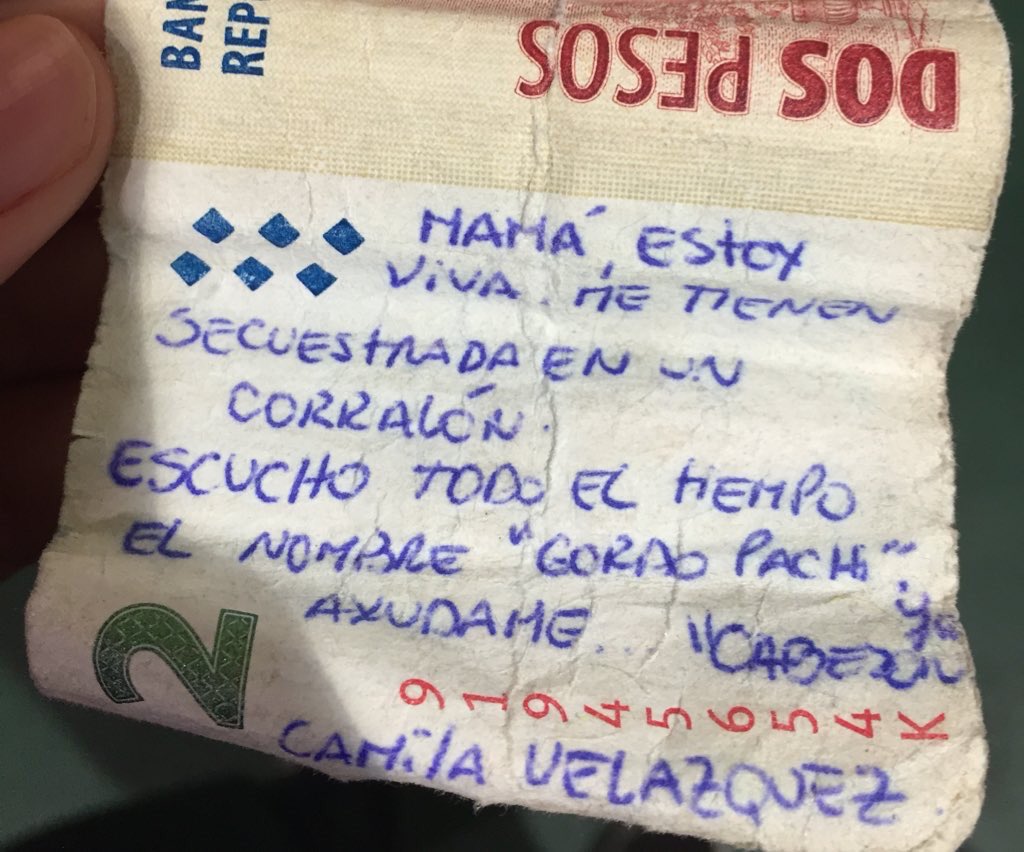 BAN
REP
DOS PESOS
MAMÁ, ESTOY
VIVA. ME TIENEN
SECUESTRADA EN UN
CORRALÓN.
ESCUCHO TODO EL TIEMPO
EL NOMBRE "GORDO PACHI".
AYUDAME... "CABEZÓN
2
91945654K
CAMILA VELAZQUEZ.